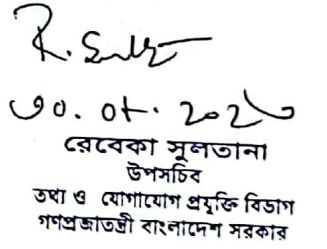 ৩০.০৮.২০২৬
রেবেকা সুলতানা
উপসচিব
তথ্য ও যোগাযোগ প্রযুক্তি বিভাগ
গণপ্রজাতন্ত্রী বাংলাদেশ সরকার